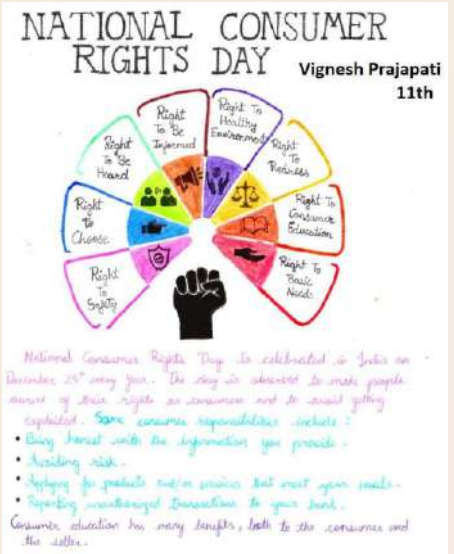 NATIONAL CONSUMER
RIGHTS DAY
Vignesh Prajapati
11th
Right
To
Safety
Right
To
Choose
Right
To Be
Heard
Right
To Be
Informed
Right To
Healthy
Environment
Right
To
Redress
Right To
Consumer
Education
Right To
Basic
Needs
National Consumer Rights Day is celebrated in India on
December 24th every year. The day is observed to make people
aware of their rights as consumers and to avoid getting
exploited. Some consumer responsibilities include :
• Being honest with the information you provide.
• Avoiding risk.
• Applying for products and/or services that meet your needs.
• Reporting unauthorized transactions to your bank.
Consumer education has many benefits, both to the consumer and
the seller.